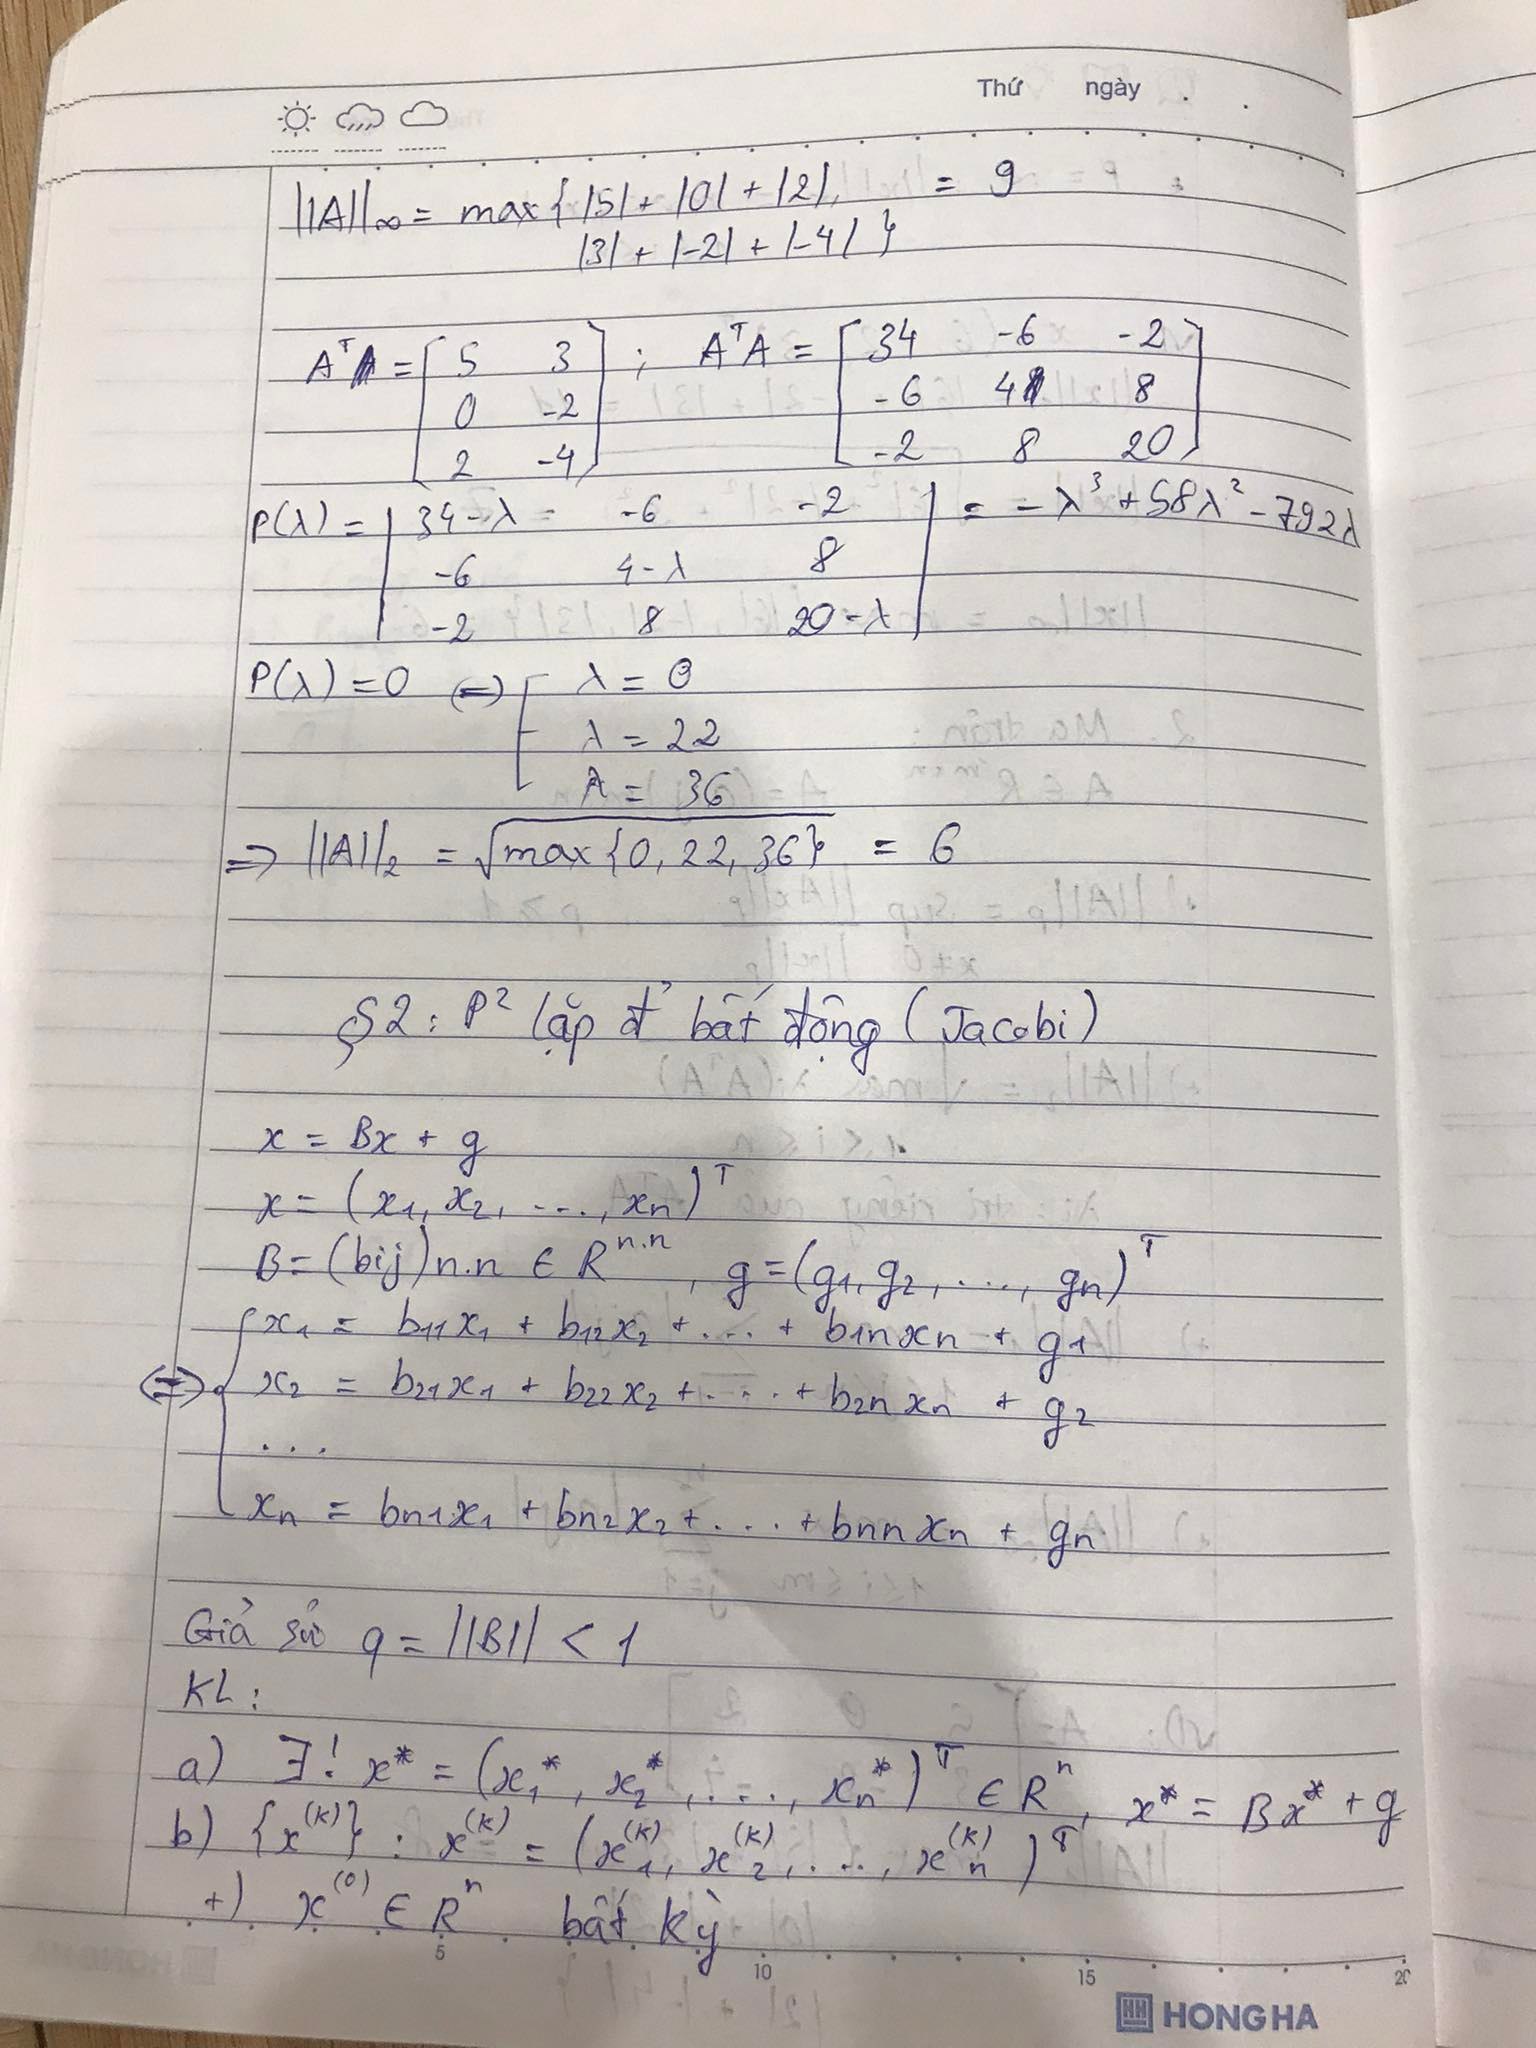 Thứ ngày
||A||∞ = max{ |5| + |0| + |2|, = 9
|3| + |-2| + |-4| }
Aᵀ = [ 5 3 ; AᵀA = [ 34 -6 -2
0 -2 -6 4 8
2 -4 ] -2 8 20 ]
P(λ) = | 34-λ -6 -2 | = -λ³ + 58λ² - 792λ
-6 4-λ 8
-2 8 20-λ
P(λ) = 0 (=) [ λ = 0
λ = 22
λ = 36
=> ||A||₂ = √max{0, 22, 36} = 6
§2: P² lặp đ̉ bất động (Jacobi)
x = Bx + g
x = (x₁, x₂, ..., xn)ᵀ
B = (bij)n.n ∈ Rⁿ·ⁿ, g = (g₁, g₂, ..., gn)ᵀ
x₁ = b₁₁x₁ + b₁₂x₂ + ... + b₁nxn + g₁
(=) { x₂ = b₂₁x₁ + b₂₂x₂ + ... + b₂nxn + g₂
...
xn = bn₁x₁ + bn₂x₂ + ... + bnnxn + gn
Giả sử q = ||B|| < 1
KL:
a) ∃! x* = (x₁*, x₂*, ..., xn*)ᵀ ∈ Rⁿ, x* = Bx* + g
b) {x⁽ᵏ⁾} : x⁽ᵏ⁾ = (x₁⁽ᵏ⁾, x₂⁽ᵏ⁾, ..., xn⁽ᵏ⁾)ᵀ
+) x⁽⁰⁾ ∈ Rⁿ bất kỳ
5 10 15 20
HONG HA